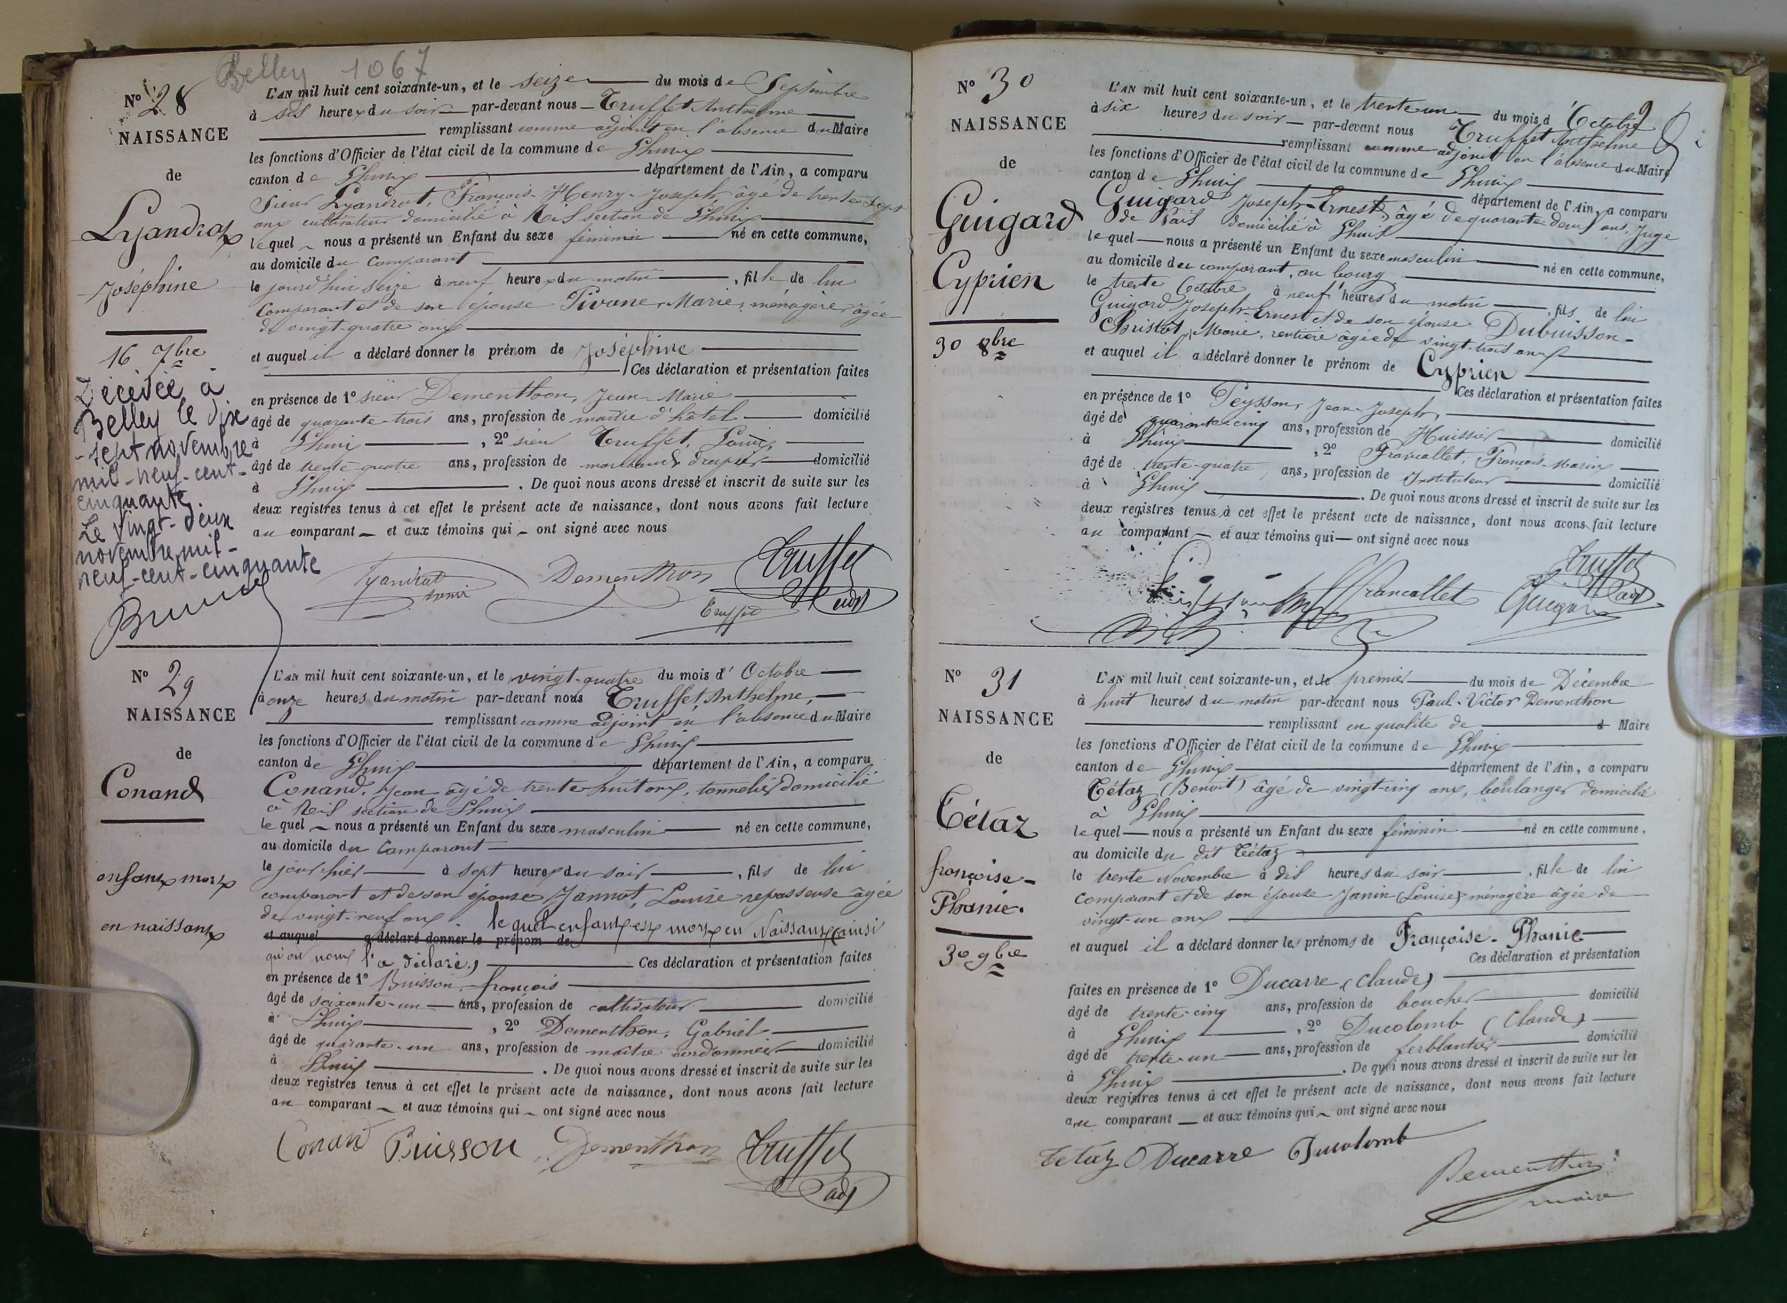 Belley 1067
N° 28
NAISSANCE
de
Lyandrat
Joséphine
16 7bre
Décédée à
Belley le dix
-sept novembre
mil-neuf-cent-
cinquante.
Le vingt-deux
novembre mil-
neuf-cent-cinquante
L'AN mil huit cent soixante-un, et le seize du mois de Septembre
à six heures du soir par-devant nous Truffet Anthelme
remplissant comme adjoint en l'absence du Maire
les fonctions d'Officier de l'état civil de la commune de Lhuis
canton de Lhuis département de l'Ain, a comparu
Sieur Lyandrat, François-Henry-Joseph âgé de trente-sept
ans cultivateur domicilié à section de Lhuis
lequel nous a présenté un Enfant du sexe féminin né en cette commune,
au domicile du comparant
le jourd'hui seize à neuf heures du matin, fille de lui
comparant et de son épouse Marie, ménagère âgée
de vingt-quatre ans
et auquel il a déclaré donner le prénom de Joséphine
Ces déclaration et présentation faites
en présence de 1° sieur Dementhon, Jean-Marie
âgé de quarante-trois ans, profession de maître d'hôtel domicilié
à Lhuis, 2° sieur Truffet, Louis
âgé de trente-quatre ans, profession de marchand drapier domicilié
à Lhuis. De quoi nous avons dressé et inscrit de suite sur les
deux registres tenus à cet effet le présent acte de naissance, dont nous avons fait lecture
au comparant et aux témoins qui ont signé avec nous
Lyandrat Dementhon Truffet
Truffet adj
N° 29
NAISSANCE
de
Conand
enfant mort
en naissant
L'AN mil huit cent soixante-un, et le vingt-quatre du mois d'Octobre
à onze heures du matin par-devant nous Truffet, Anthelme,
remplissant comme adjoint en l'absence du Maire
les fonctions d'Officier de l'état civil de la commune de Lhuis
canton de Lhuis département de l'Ain, a comparu
Conand, Jean âgé de trente-huit ans, tonnelier domicilié
à section de Lhuis
lequel nous a présenté un Enfant du sexe masculin né en cette commune,
au domicile du comparant
le jour hier à sept heures du soir, fils de lui
comparant et de son épouse Jannot, Louise repasseuse âgée
de vingt-neuf ans lequel enfant est mort en naissant ainsi
et auquel a déclaré donner le prénom de
qu'on nous l'a déclaré, Ces déclaration et présentation faites
en présence de 1° Buisson, françois
âgé de soixante-un ans, profession de cultivateur domicilié
à Lhuis, 2° Dementhon, Gabriel
âgé de quarante-un ans, profession de maître cordonnier domicilié
à Lhuis. De quoi nous avons dressé et inscrit de suite sur les
deux registres tenus à cet effet le présent acte de naissance, dont nous avons fait lecture
au comparant et aux témoins qui ont signé avec nous
Conand Buisson Dementhon Truffet
adj
N° 30
NAISSANCE
de
Guigard
Cyprien
30 8bre
9
L'AN mil huit cent soixante-un, et le trente-un du mois d'Octobre
à six heures du soir par-devant nous Truffet Anthelme
remplissant comme adjoint en l'absence du Maire
les fonctions d'Officier de l'état civil de la commune de Lhuis
canton de Lhuis département de l'Ain, a comparu
Guigard Joseph-Ernest, âgé de quarante-deux ans, Juge
de Paix domicilié à Lhuis
lequel nous a présenté un Enfant du sexe masculin né en cette commune,
au domicile du comparant, au bourg
le trente Octobre à neuf heures du matin, fils de lui
Guigard Joseph-Ernest et de son épouse Dubuisson-
Christot, Marie, rentière âgée de vingt-trois ans
et auquel il a déclaré donner le prénom de Cyprien
Ces déclaration et présentation faites
en présence de 1° Peysson, Jean-Joseph,
âgé de quarante-cinq ans, profession de Huissier domicilié
à Lhuis, 2° Francallet, François-Marin
âgé de trente-quatre ans, profession de Instituteur domicilié
à Lhuis. De quoi nous avons dressé et inscrit de suite sur les
deux registres tenus à cet effet le présent acte de naissance, dont nous avons fait lecture
au comparant et aux témoins qui ont signé avec nous
Francallet Guigard Truffet
adj
N° 31
NAISSANCE
de
Tétaz
françoise-
Phanie.
30 9bre
L'AN mil huit cent soixante-un, et le premier du mois de Décembre
à huit heures du matin par-devant nous Paul-Victor Dementhon
remplissant en qualité de d Maire
les fonctions d'Officier de l'état civil de la commune de Lhuis
canton de Lhuis département de l'Ain, a comparu
Tétaz (Benoit) âgé de vingt-cinq ans, boulanger domicilié
à Lhuis
lequel nous a présenté un Enfant du sexe féminin né en cette commune.
au domicile du dit Tétaz
le trente Novembre à dix heures du soir, fille de lui
comparant et de son épouse Janin (Louise) ménagère âgée de
vingt-un ans
et auquel il a déclaré donner les prénoms de Françoise-Phanie
Ces déclaration et présentation
faites en présence de 1° Ducarre (Claude)
âgé de trente-cinq ans, profession de boucher domicilié
à Lhuis, 2° Ducolomb (Claude)
âgé de trente-un ans, profession de ferblantier domicilié
à Lhuis. De quoi nous avons dressé et inscrit de suite sur les
deux registres tenus à cet effet le présent acte de naissance, dont nous avons fait lecture
au comparant et aux témoins qui ont signé avec nous
Tétaz Ducarre Ducolomb
Dementhon
maire